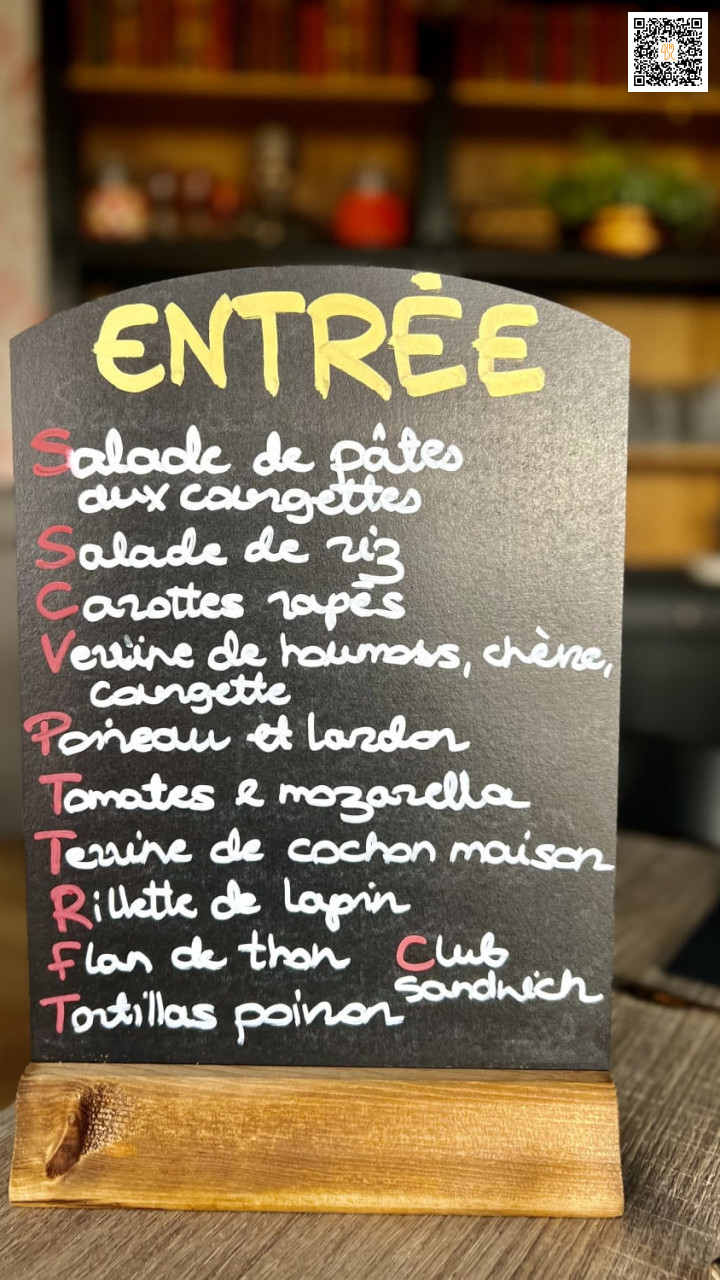 ENTRÉE
Salade de pâtes
aux courgettes
Salade de riz
Carottes rapés
Verrine de houmoss, chèvre,
courgette
Poireau et lardon
Tomates & mozarella
Terrine de cochon maison
Rillette de lapin
Flan de thon
Club
sandwich
Tortillas poivron